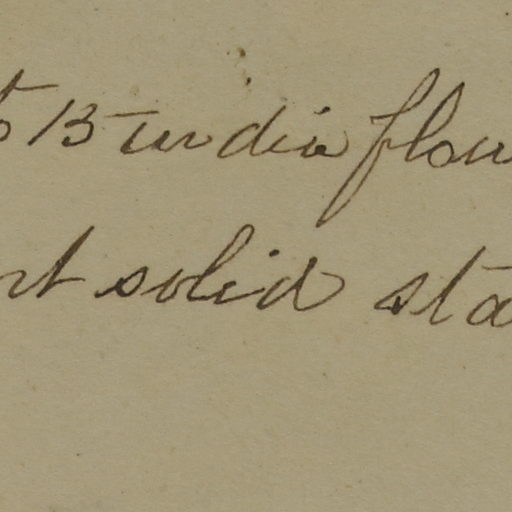 15 india flou
rt solid sta